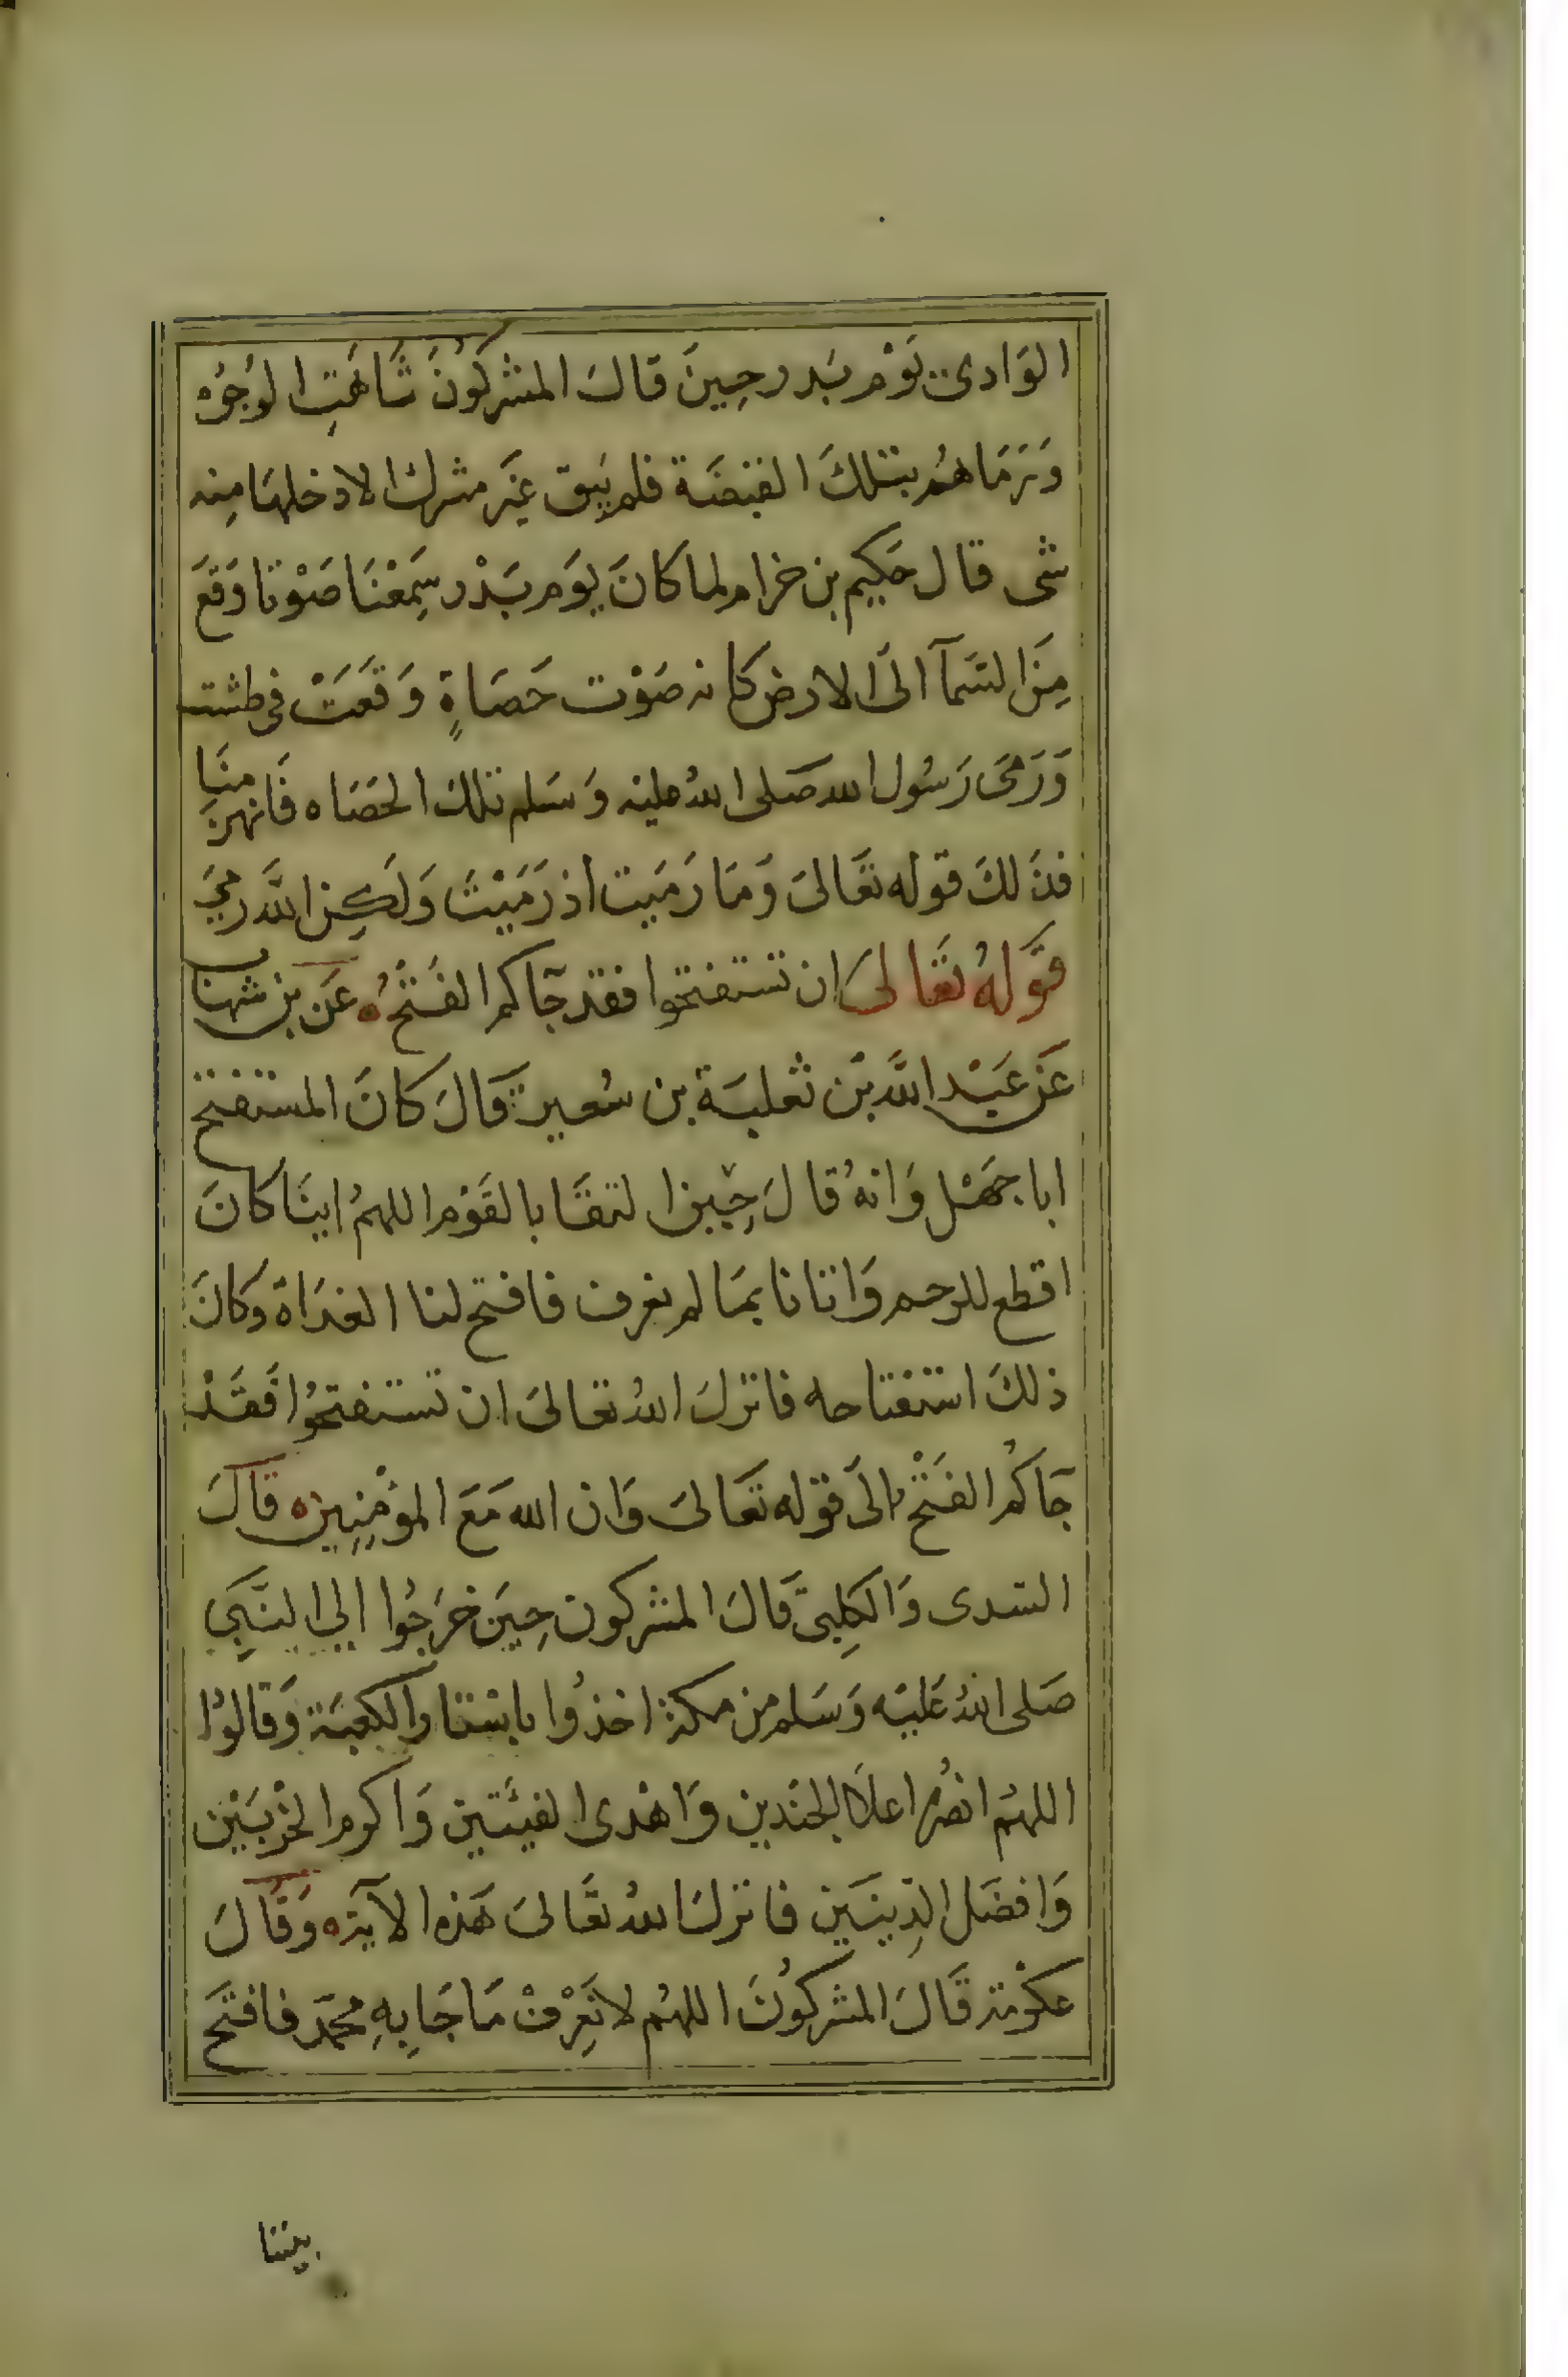 الوَادى يَوْم بَدر حِينَ قالَ المشركُونَ شَاهَتِ الوُجُوه
وَرَمَاهُم بتلكَ القبْضَة فلم يَبق عَين مشرك الا دخلهَا مِنه
شى قال حَكيم بن خزام لما كَانَ يوَم بَدْر سَمِعْنَا صَوْتا وَقعَ
مِنَ السَّمَآ الىَ الارض كانه صَوْت حَصَاةٍ وَقعَتْ فى طشت
وَرَمىَ رَسُول الله صَلى اللهُ عليه وَسَلم تلك الحَصَاه فَانهزمنَا
فذَلكَ قوله تَعَالىَ وَمَا رَمَيت اذ رَمَيْتَ وَلَكِن اللَّه رَمىَ
قَوْلهُ تعَالىَ ان تستفتحوا فقد جآكم الفَتْحُ ه عَن بن شهاب
عَن عَبْد اللَّه بْن ثعلبَة بن سُعير قَالَ كانَ المستفتح
ابا جهَل وَانهُ قالَ حِين التقَا بالقَوْم اللهمُ اينَا كَانَ
اقطع للرحم وَاتانا بمَا لم نعرف فافتح لنا الغدَاة وكانَ
ذلكَ استفتاحه فانزلَ اللهُ تعالىَ ان تستفتحُوا فَقَدْ
جَآكُم الفَتْح الىَ قوله تَعَالىَ وَان الله مَعَ المؤمِنِين ه قالَ
السدى وَالكلِبىّ قَالَ المشركون حِينَ خَرَجُوا الي النَّبِي
صَلى اللهُ عَليْه وَسَلم من مكة اخذوُا باسْتار الكعبَة وَقالوُا
اللهمُ انصُر اعلاَ الجندين وَاهْدى الفيئتين وَاكرم الحْزبَيْن
وَافضَل الدِينَين فانزلَ اللهُ تعَالىَ هَذه الآيَة ه وَقَالَ
عكرْمة قَالَ المشركُونَ اللهُم لا نَعِرْفْ مَا جَا بِهِ محَمّد فافتَح
بيننا